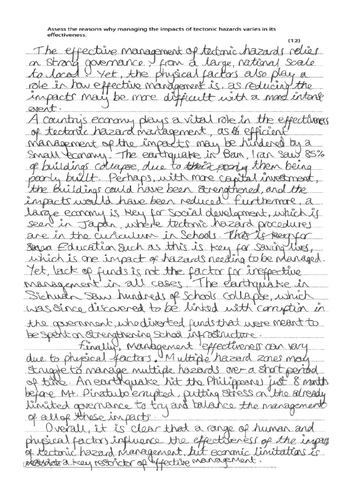 Assess the reasons why managing the impacts of tectonic hazards varies in its
effectiveness.
(12)
The effective management of tectonic hazards relies
on strong governance, from a large, national scale
to local. Yet, the physical factors also play a
role in how effective management is, as reducing the
impacts may be more difficult with a more intense
event.
A country's economy plays a vital role in the effectiveness
of tectonic hazard management, as efficient
management of the impacts may be hindered by a
small economy. The earthquake in Bam, Iran saw 85%
of buildings collapse, due to them being
poorly built. Perhaps, with more capital investment,
the buildings could have been strengthened, and the
impacts would have been reduced. Furthermore, a
large economy is key for social development, which is
seen in Japan, where tectonic hazard procedures
are in the curriculum in schools. This is key for
Education such as this is key for saving lives,
which is one impact of hazards needing to be managed.
Yet, lack of funds is not the factor for ineffective
management in all cases. The earthquake in
Sichuan saw hundreds of schools collapse, which
was since discovered to be linked with corruption in
the government, who diverted funds that were meant to
be spent on strengthening school infrastructure.
Finally, management effectiveness can vary
due to physical factors. Multiple hazard zones may
struggle to manage multiple hazards over a short period
of time. An earthquake hit the Philippines just 8 months
before Mt. Pinatubo erupted, putting stress on the already
limited governance to try and balance the management
of all of these impacts.
Overall, it is clear that a range of human and
physical factors influence the effectiveness of the impacts
of tectonic hazard management, but economic limitations is
a key restrictor of effective management.